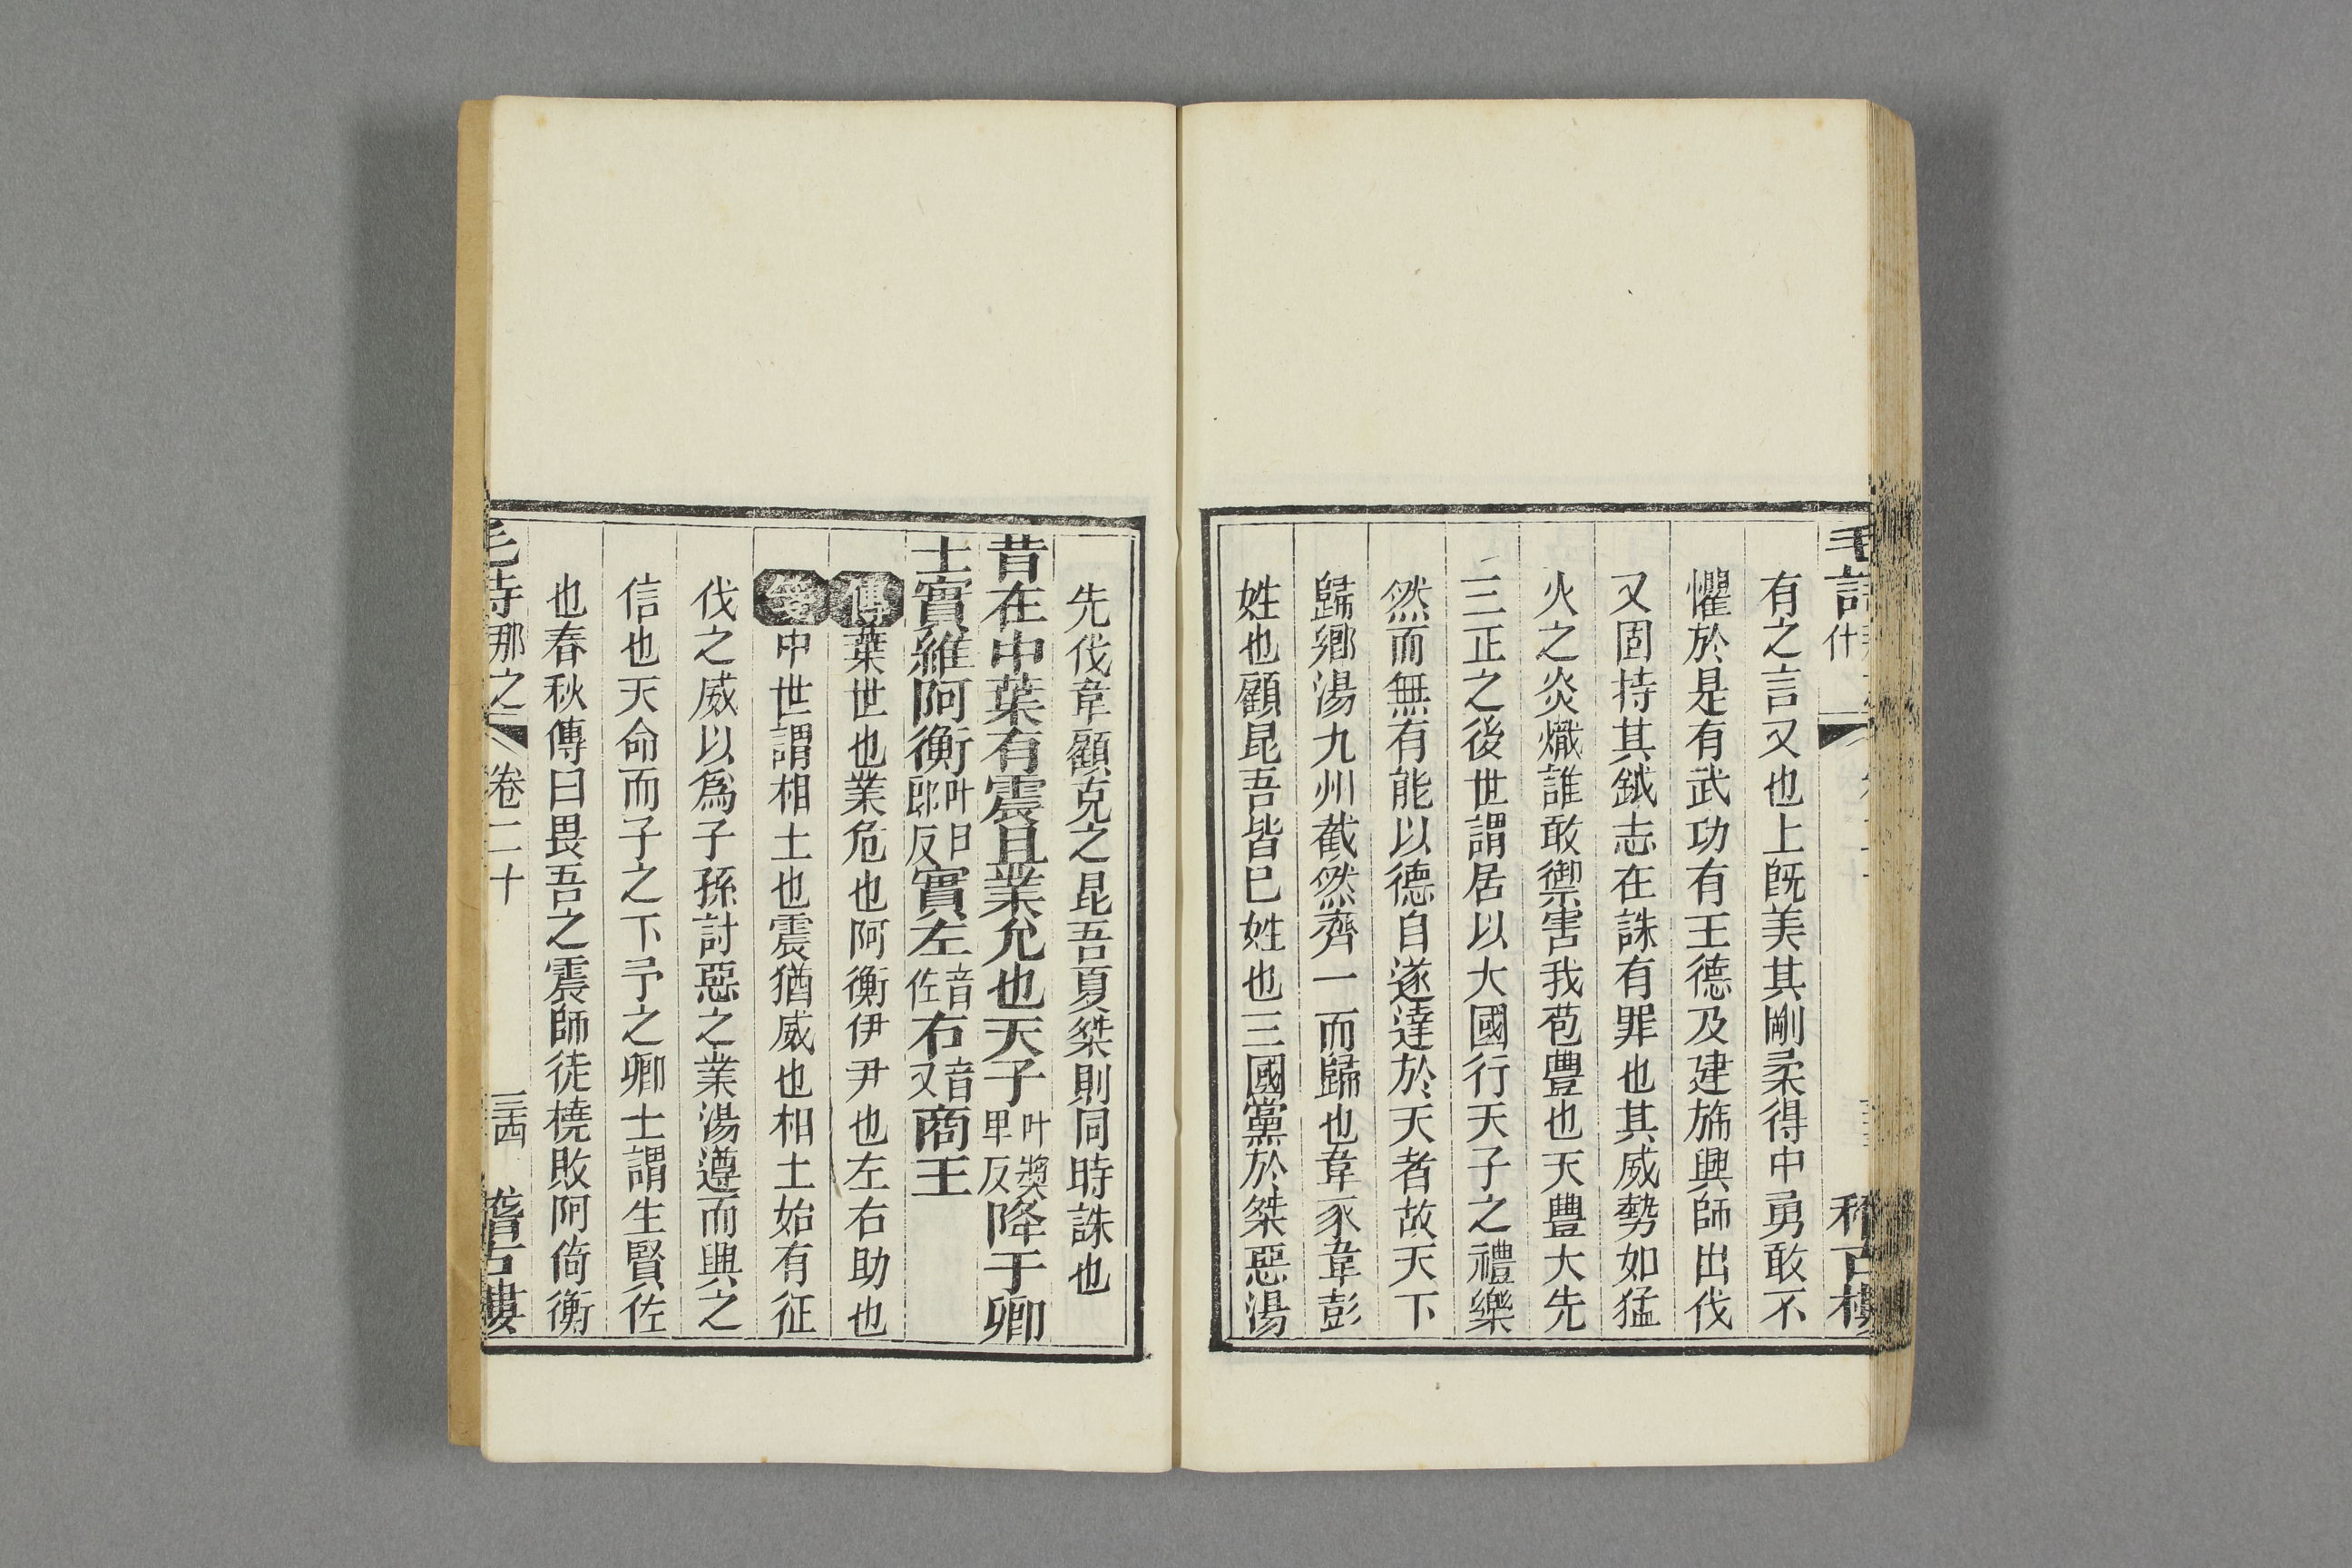 有之言又也上既美其剛柔得中勇敢不
懼於是有武功有王德及建旆興師出伐
又固持其鉞志在誅有罪也其威勢如猛
火之炎熾誰敢禦害我苞豐也天豐大先
三正之後世謂居以大國行天子之禮樂
然而無有能以德自遂達於天者故天下
歸鄉湯九州截然齊一而歸也韋豕韋彭
姓也顧昆吾皆已姓也三國黨於桀惡湯
先伐韋顧克之昆吾夏桀則同時誅也
昔在中葉有震且業允也天子叶獎里反降于卿
士實維阿衡叶戶郎反實左音佐右音又商王
傳葉世也業危也阿衡伊尹也左右助也
箋中世謂相土也震猶威也相土始有征
伐之威以爲子孫討惡之業湯遵而興之
信也天命而子之下予之卿士謂生賢佐
也春秋傳曰畏吾之震師徒橈敗阿倚衡
毛詩那之 卷二十 三四 稽古樓